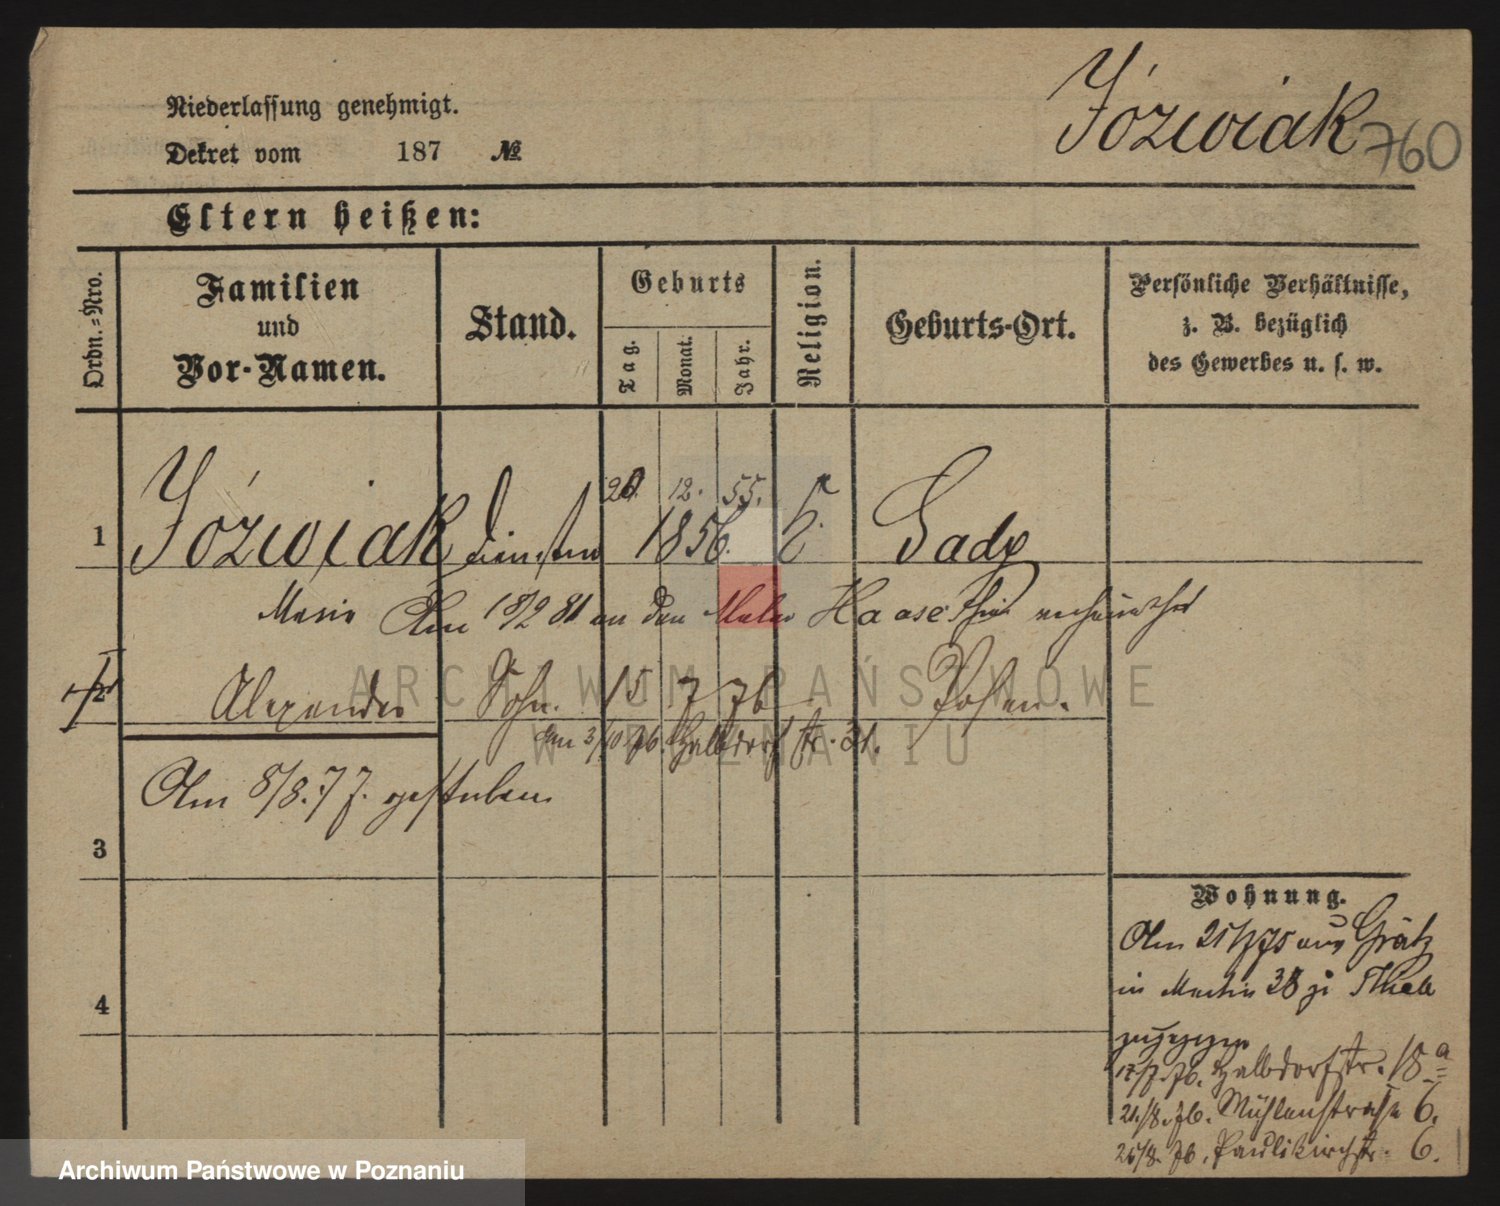 Józwiak 760
Niederlassung genehmigt.
Dekret vom 187 №
Eltern heißen:
Ordn.-Nro.
Familien
und
Vor-Namen.
Stand.
Geburts
Tag.
Monat.
Jahr.
Religion.
Geburts-Ort.
Persönliche Verhältnisse,
z. B. bezüglich
des Gewerbes u. s. w.
20. 12. 55.
1 Józwiak 1856. Sady
Marie Am 18/2 81 an den Maler Haase hier verheirathet
2 Alexander Sohn. 15 7 76 Posen.
Am 3/10 76. Halbdorfstr. 31.
Am 8/8. 77. gestorben
3
4
Wohnung.
Am 25/ 75 aus Grätz
in Martin 38 zu
zugezogen
17/7. 76. Halbdorfstr. 18 a
21/8. 76. Mühlenstrasse 6.
25/8. 76. Paulikirchstr. 6.
ARCHIWUM PAŃSTWOWE
W POZNANIU
Archiwum Państwowe w Poznaniu